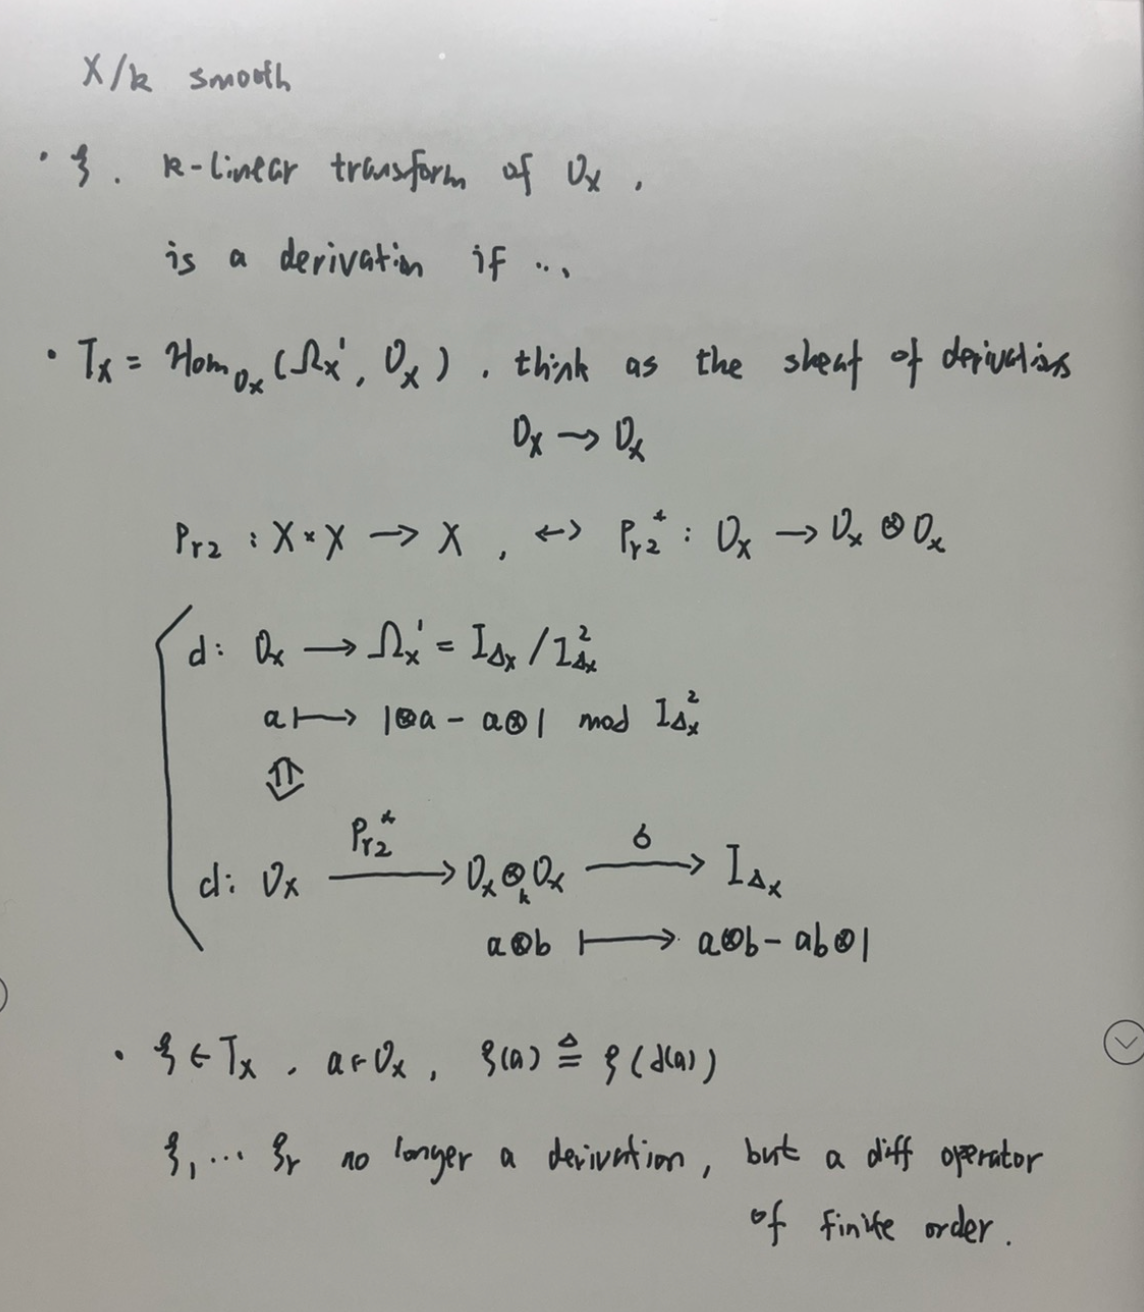 X/k smooth
· ξ. k-linear transform of O_X,
is a derivation if ...
· T_X = Hom_{O_X}(Ω_X^1, O_X). think as the sheaf of derivations
O_X → O_X
Pr_2 : X × X → X, ↔ Pr_2^* : O_X → O_X ⊗ O_X
d: O_X → Ω_X^1 = I_{Δ_X} / I_{Δ_X}^2
a ↦ 1⊗a - a⊗1 mod I_{Δ_X}^2
⇕
Pr_2^* σ
d: O_X → O_X ⊗_k O_X → I_{Δ_X}
a⊗b ↦ a⊗b - ab⊗1
· ξ ∈ T_X. a ∈ O_X, ξ(a) ≜ ξ(d(a))
ξ_1 ... ξ_r no longer a derivation, but a diff operator
of finite order.